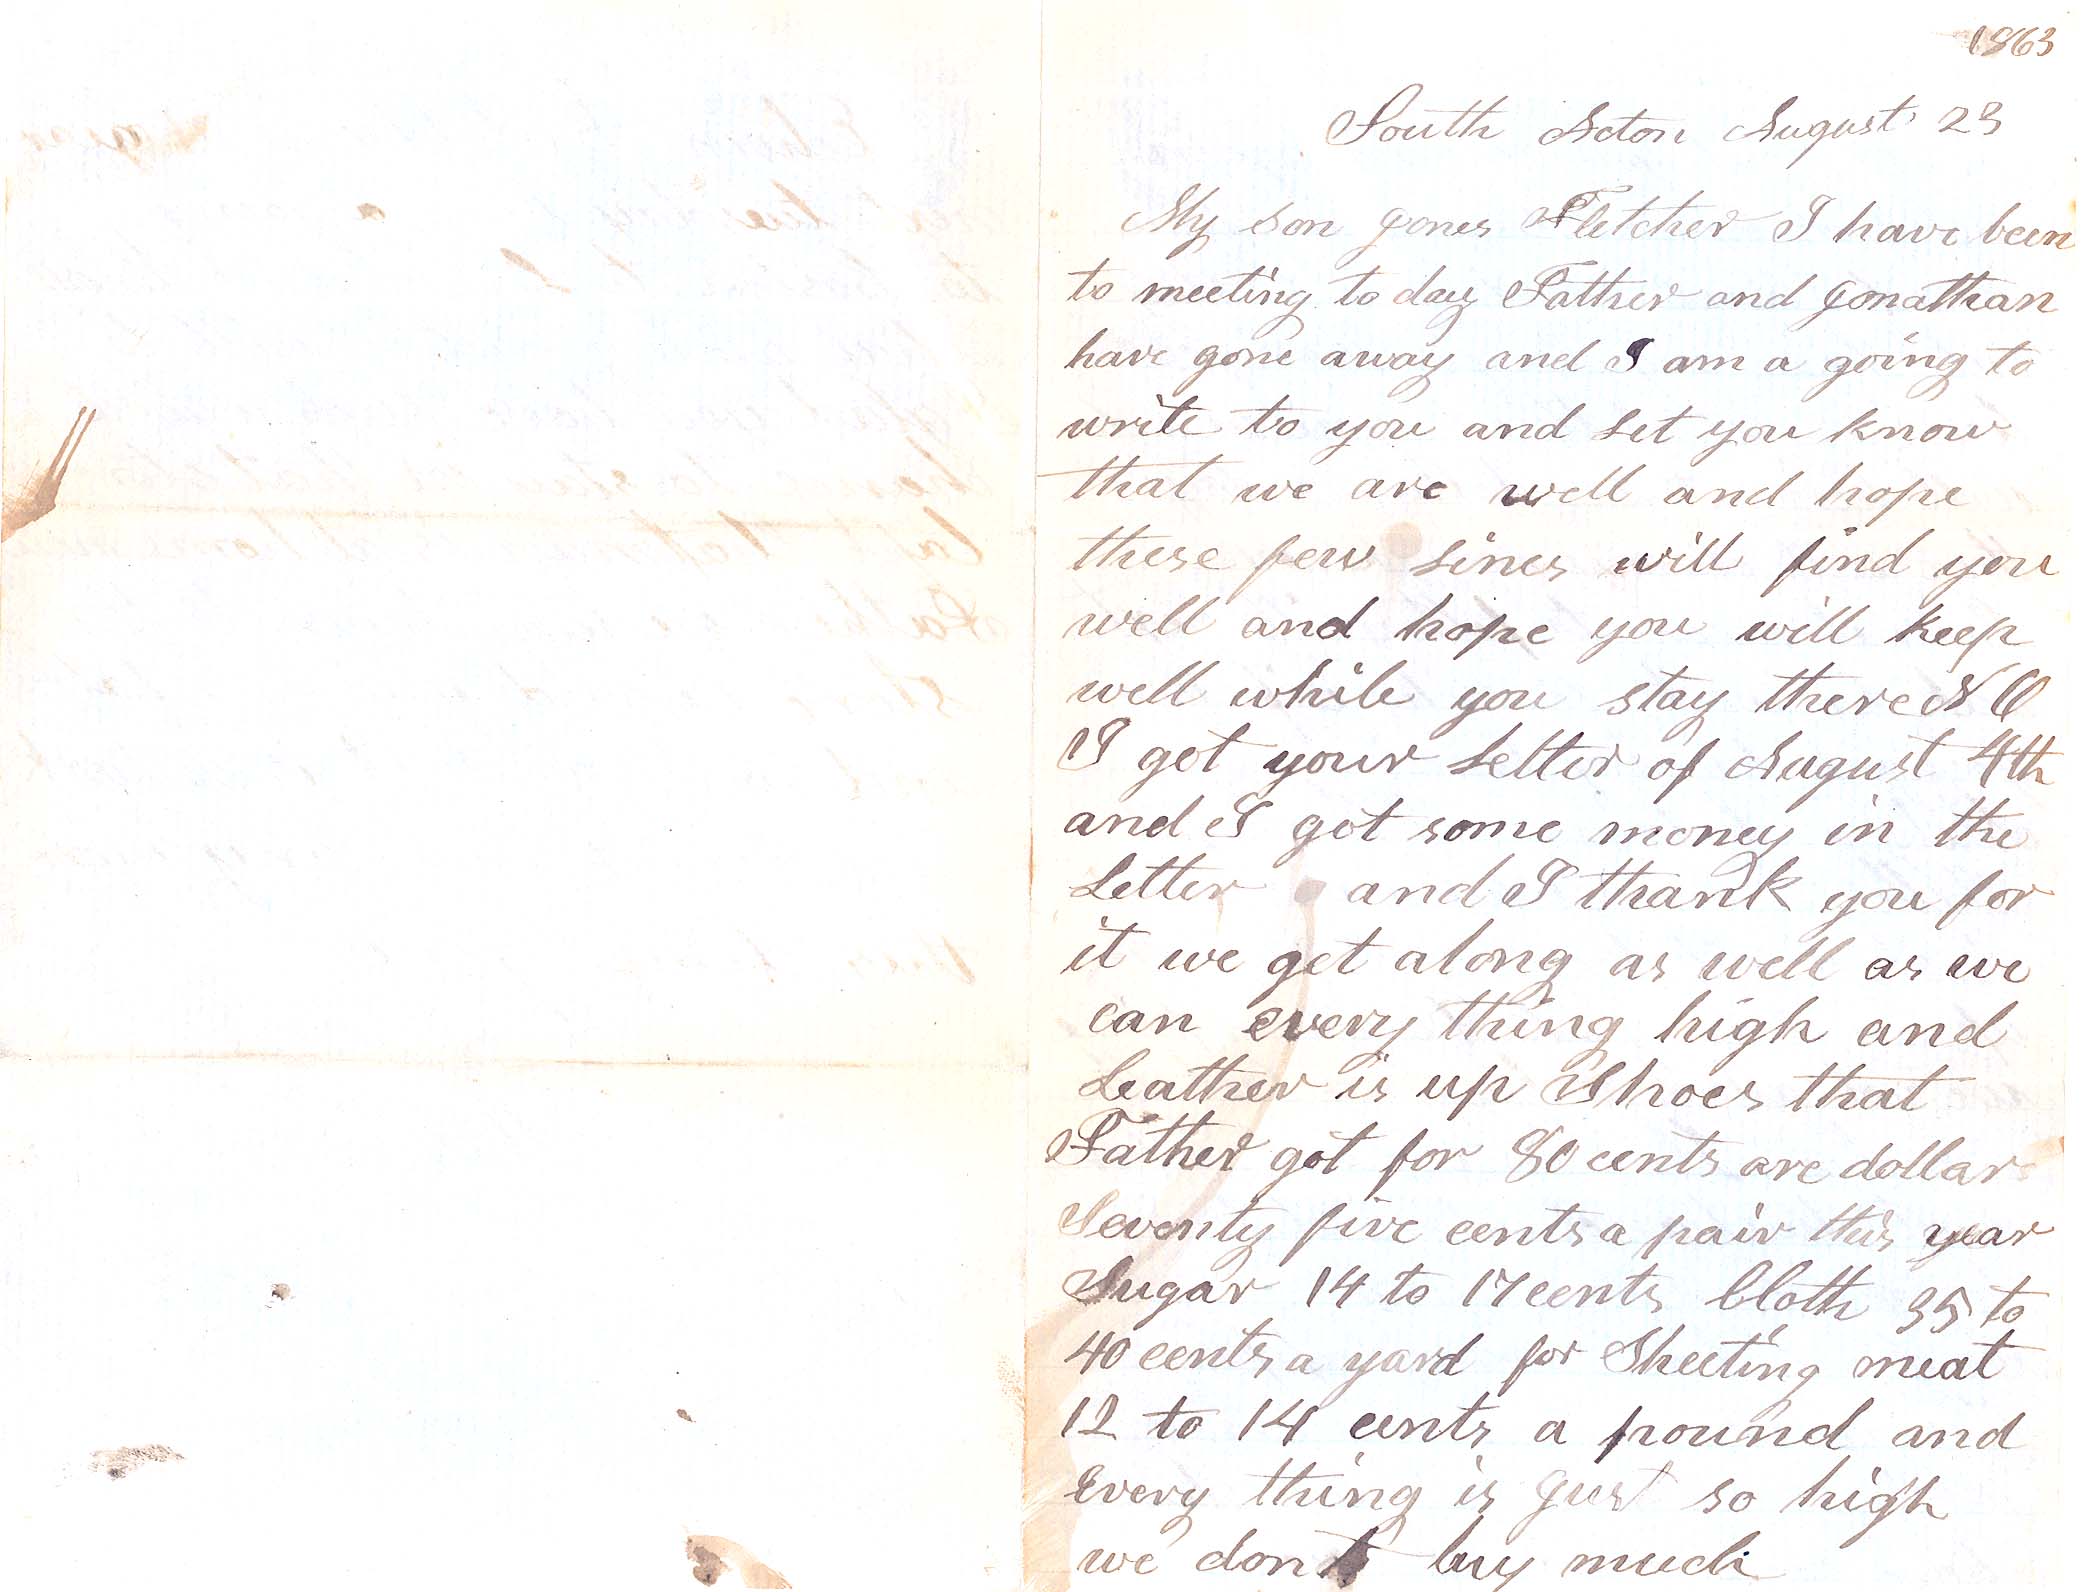 1863
South Acton August 23
My son Jones Fletcher I have been
to meeting to day Father and Jonathan
have gone away and I am a going to
write to you and Let you know
that we are well and hope
these few Lines will find you
well and hope you will keep
well while you stay there
I got your Letter of August 4th
and I got some money in the
Letter and I thank you for
it we get along as well as we
can every thing high and
Leather is up Shoes that
Father got for 80 cents are dollar
Seventy five cents a pair this year
Sugar 14 to 17 cents Cloth 35 to
40 cents a yard for Sheeting meat
12 to 14 cents a pound and
Every thing is Just so high
we dont buy much